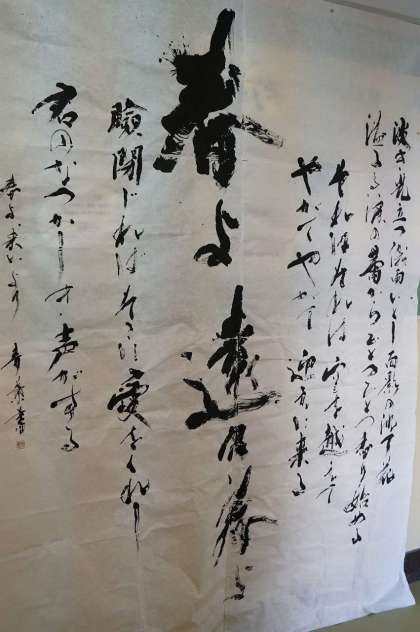 淡き光立つ俄雨いとし面影の沈丁花
溢るる涙の蕾からひとつひとつ香り始める
それはそれは空を越えて
やがてやがて迎えに来る
春よ遠き春よ
瞼閉じればそこに愛をくれし
君のなつかしき声がする
春よ来いより